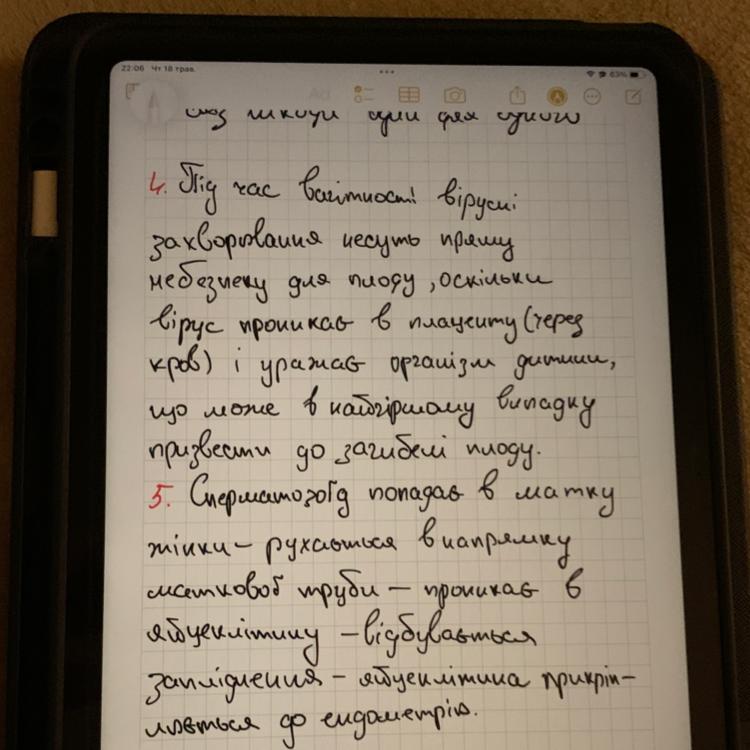 22:06 Чт 18 трав.
63%
один для одного
4. Під час вагітності вірусні
захворювання несуть пряму
небезпеку для плоду, оскільки
вірус проникає в плаценту (через
кров) і уражає організм дитини,
що може в найгіршому випадку
призвести до загибелі плоду.
5. Сперматозоїд попадає в матку
жінки – рухається в напрямку
маткової труби – проникає в
яйцеклітину – відбувається
запліднення – яйцеклітина прикріп-
люється до ендометрію.